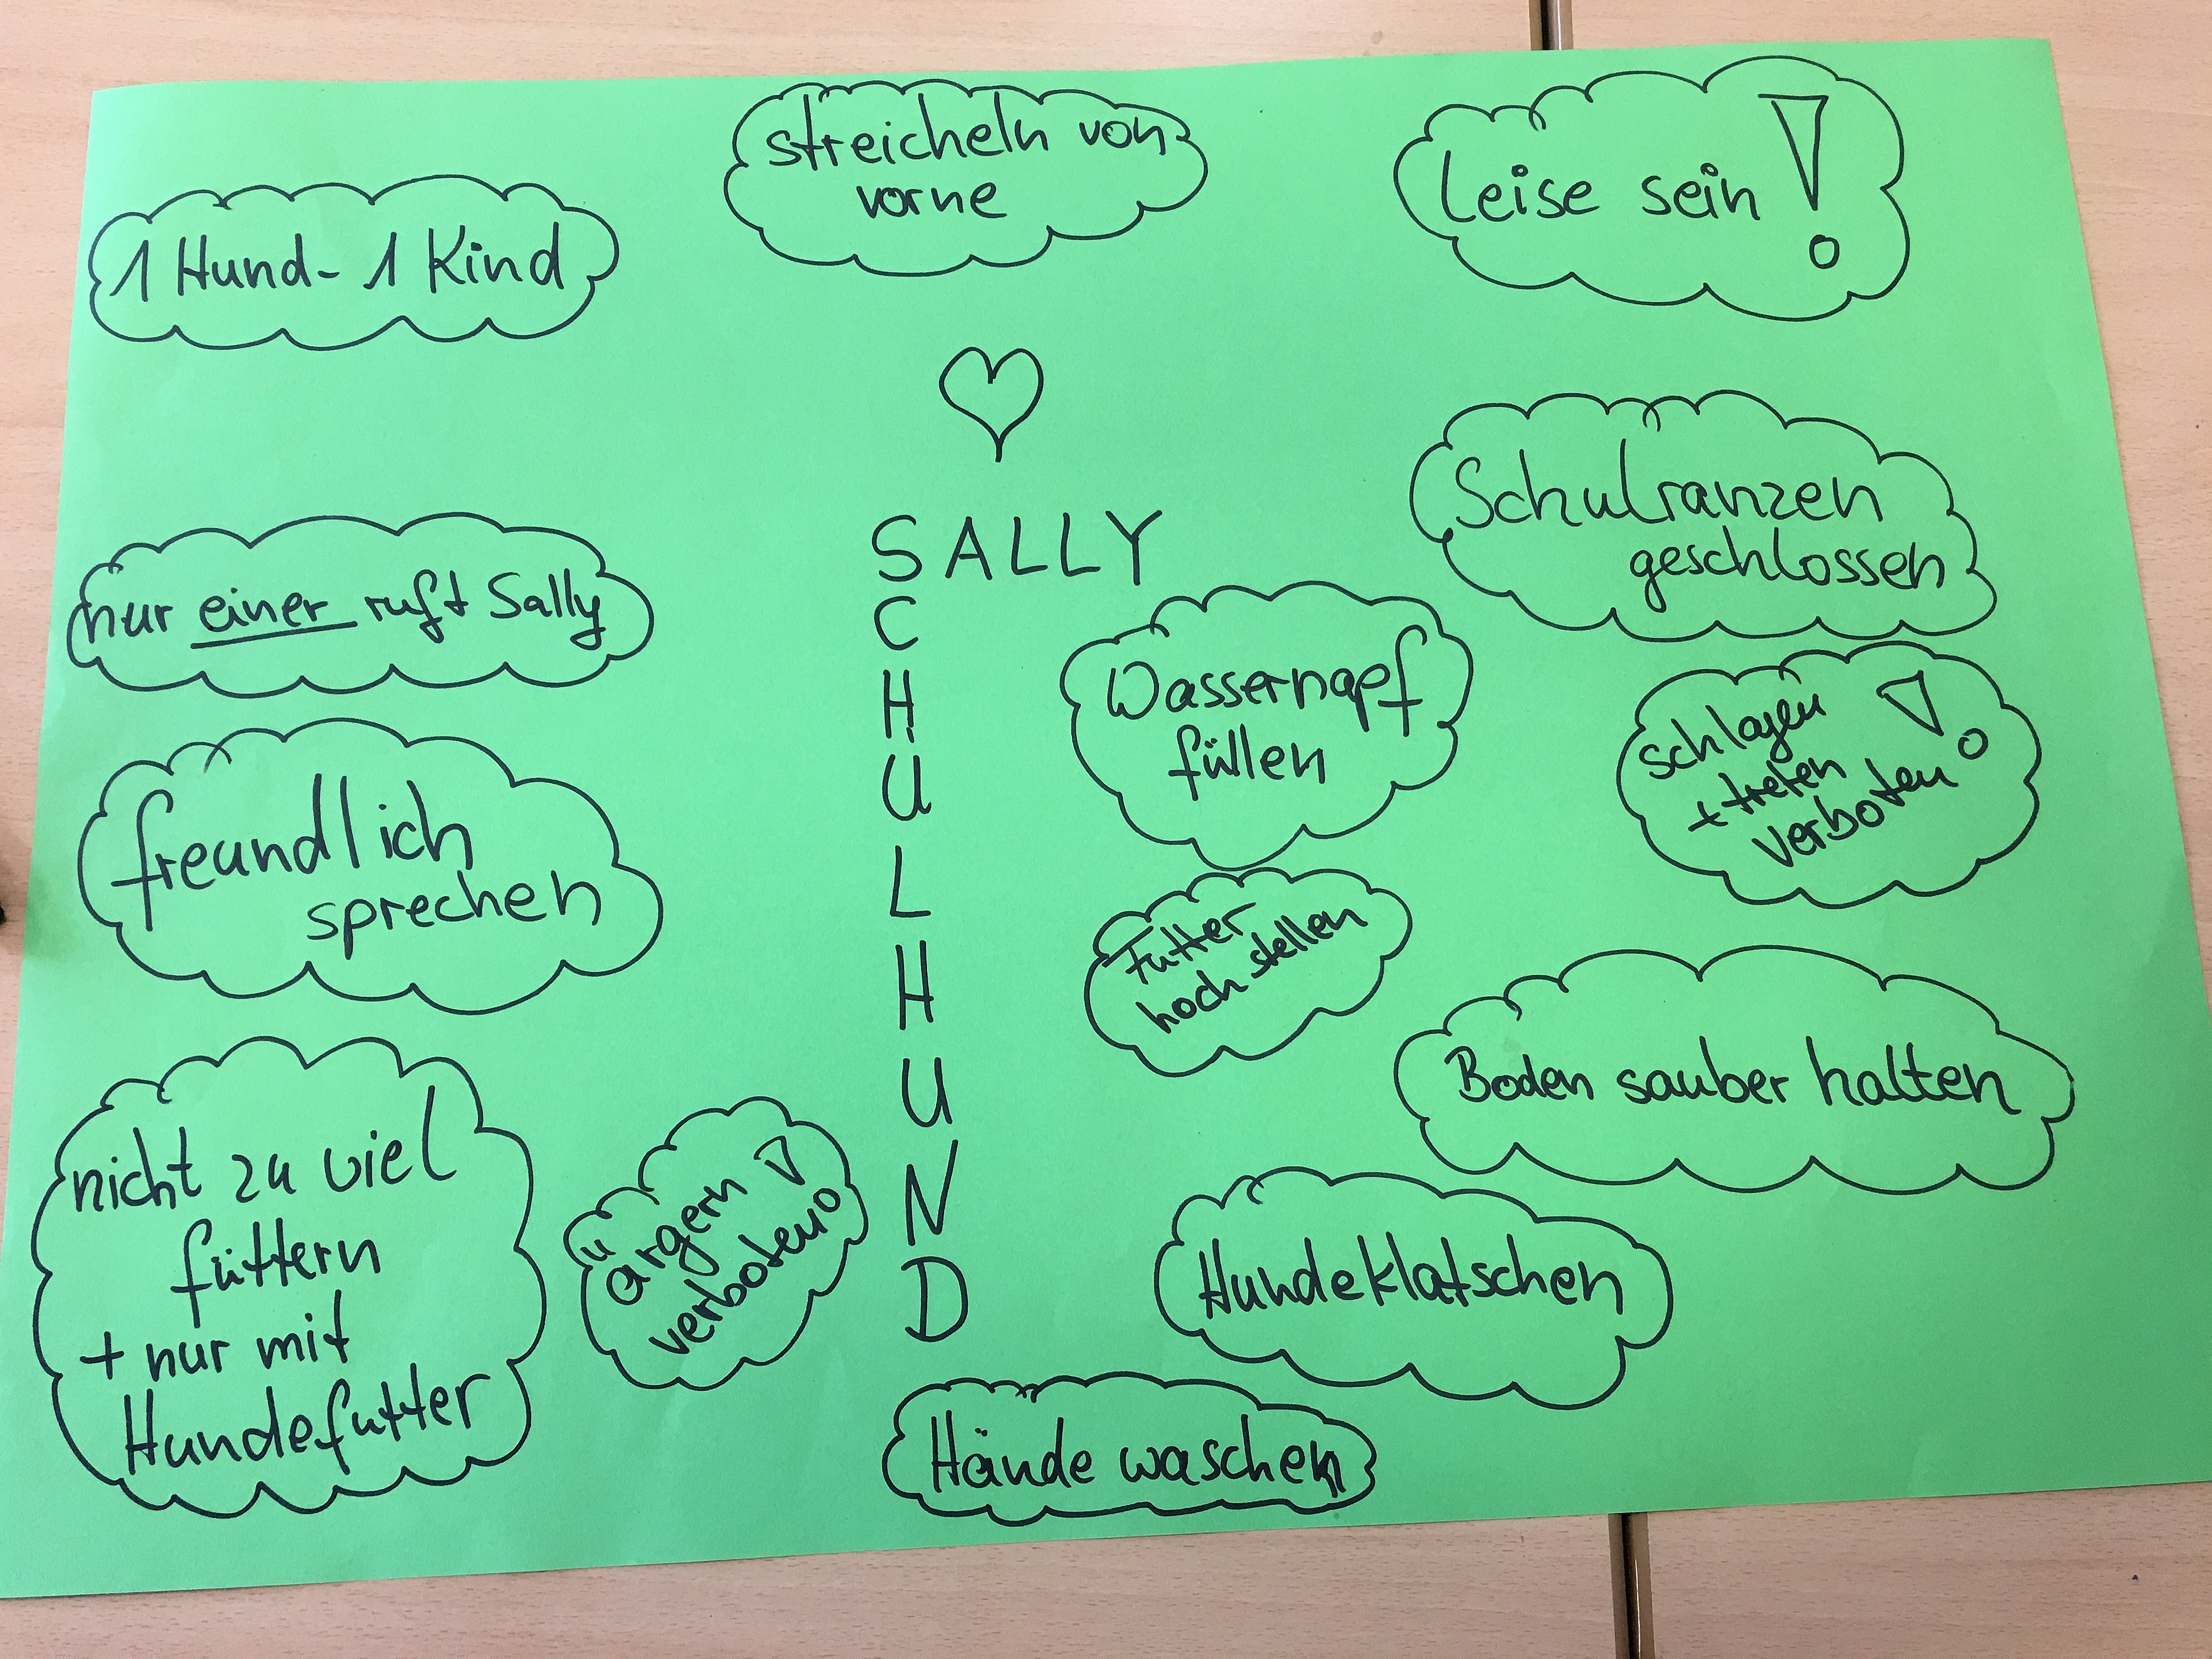 streicheln von
vorne
Leise sein!
1 Hund- 1 Kind
SALLY
C
H
U
L
H
U
N
D
Schulranzen
geschlossen
nur einer ruft Sally
Wassernapf
füllen
schlagen
+ treten
verboten!
freundlich
sprechen
Futter
hoch stellen
Boden sauber halten
nicht zu viel
füttern
+ nur mit
Hundefutter
ärgern
verboten!
Hundeklatschen
Hände waschen